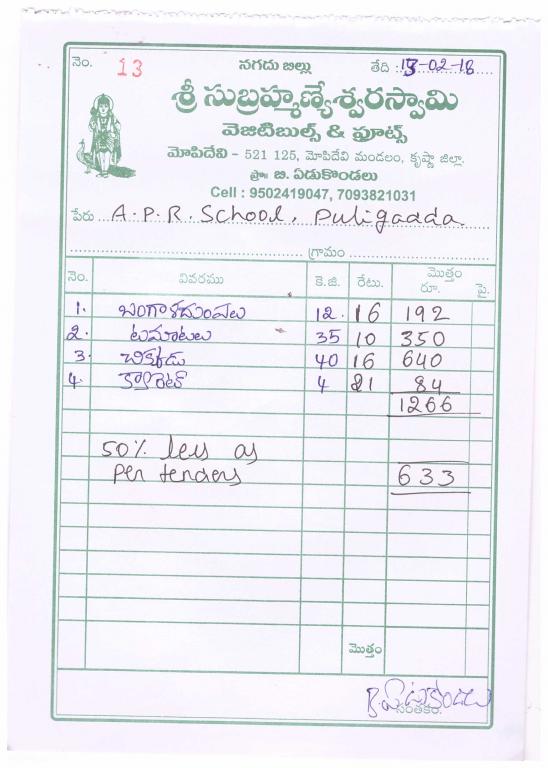 నెం. 13 నగదు బిల్లు తేది : 13-02-18
శ్రీ సుబ్రహ్మణ్యేశ్వరస్వామి
వెజిటిబుల్స్ & ఫ్రూట్స్
మోపిదేవి - 521 125, మోపిదేవి మండలం, కృష్ణా జిల్లా.
ప్రొ॥ బి. ఏడుకొండలు
Cell : 9502419047, 7093821031
పేరు A.P.R. School, Puligadda
గ్రామం
నెం. వివరము కె.జి. రేటు. మొత్తం రూ. పై.
1. బంగాళదుంపలు 12. 16 192
2. టమాటలు 35 10 350
3. చిక్కుడు 40 16 640
4. క్యారెట్ 4 21 84
1266
50% less as
per tenders 633
మొత్తం
B. ఏడుకొండలు
సంతకం.